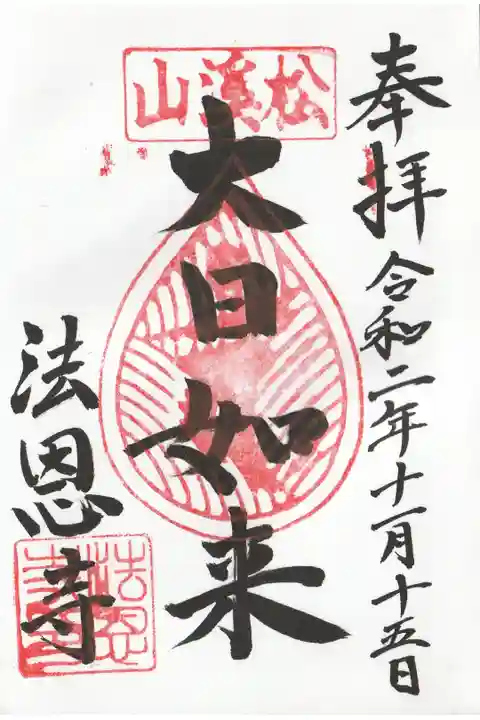 奉拝 令和二年十一月十五日
松渓山
大日如来
法恩寺
法恩寺